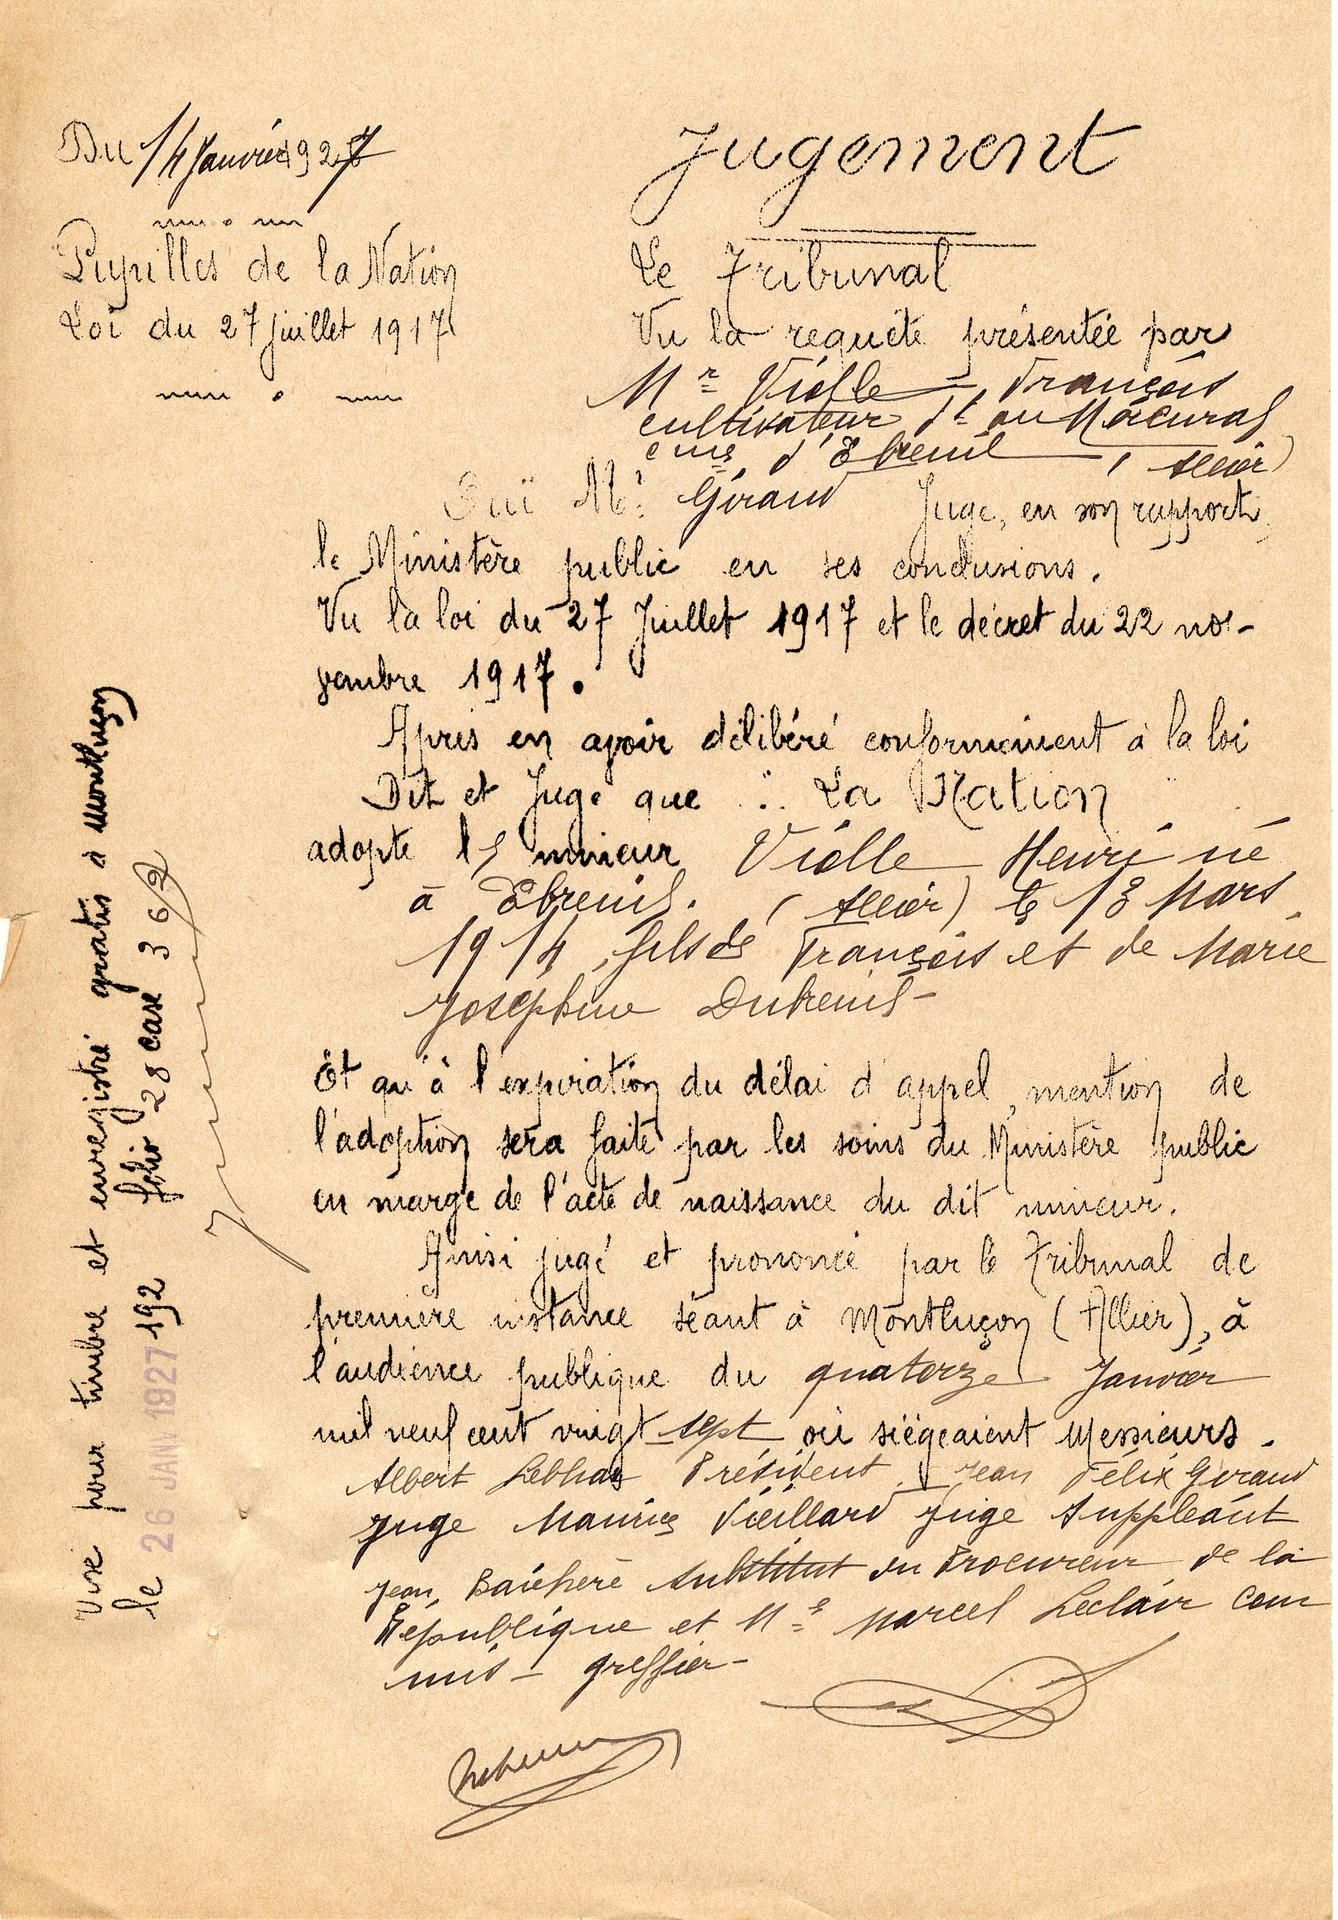 Du 14 Janvier 1927
Pupilles de la Nation
Loi du 27 juillet 1917
Jugement
Le Tribunal
Vu la requête présentée par
Mr Viölle, François
cultivateur dt au
cne d'Ebreuil, (Allier)
Ouï Mr Giraud Juge, en son rapport,
le Ministère public en ses conclusions.
Vu la loi du 27 Juillet 1917 et le décret du 22 no-
vembre 1917.
Après en avoir délibéré conformément à la loi
Dit et Juge que : La Nation
adopte le mineur Viölle Henri né
à Ebreuil. (Allier) le 13 Mars
1914, fils de François et de Marie
Joséphine Dubreuil -
Et qu'à l'expiration du délai d'appel, mention de
l'adoption sera faite par les soins du Ministère public
en marge de l'acte de naissance du dit mineur.
Ainsi jugé et prononcé par le Tribunal de
première instance séant à Montluçon (Allier), à
l'audience publique du quatorze Janvier
mil neuf cent vingt-sept où siégeaient Messieurs.
Albert Président, Jean Félix Giraud
Juge Maurice Vieillard Juge Suppléant
Jean Substitut du Procureur de la
République et Me Marcel Leclair Com
mis - greffier -
Visé pour timbre et enregistré gratis à Montluçon
le 26 JANV 1927 192 folio 28 case 362